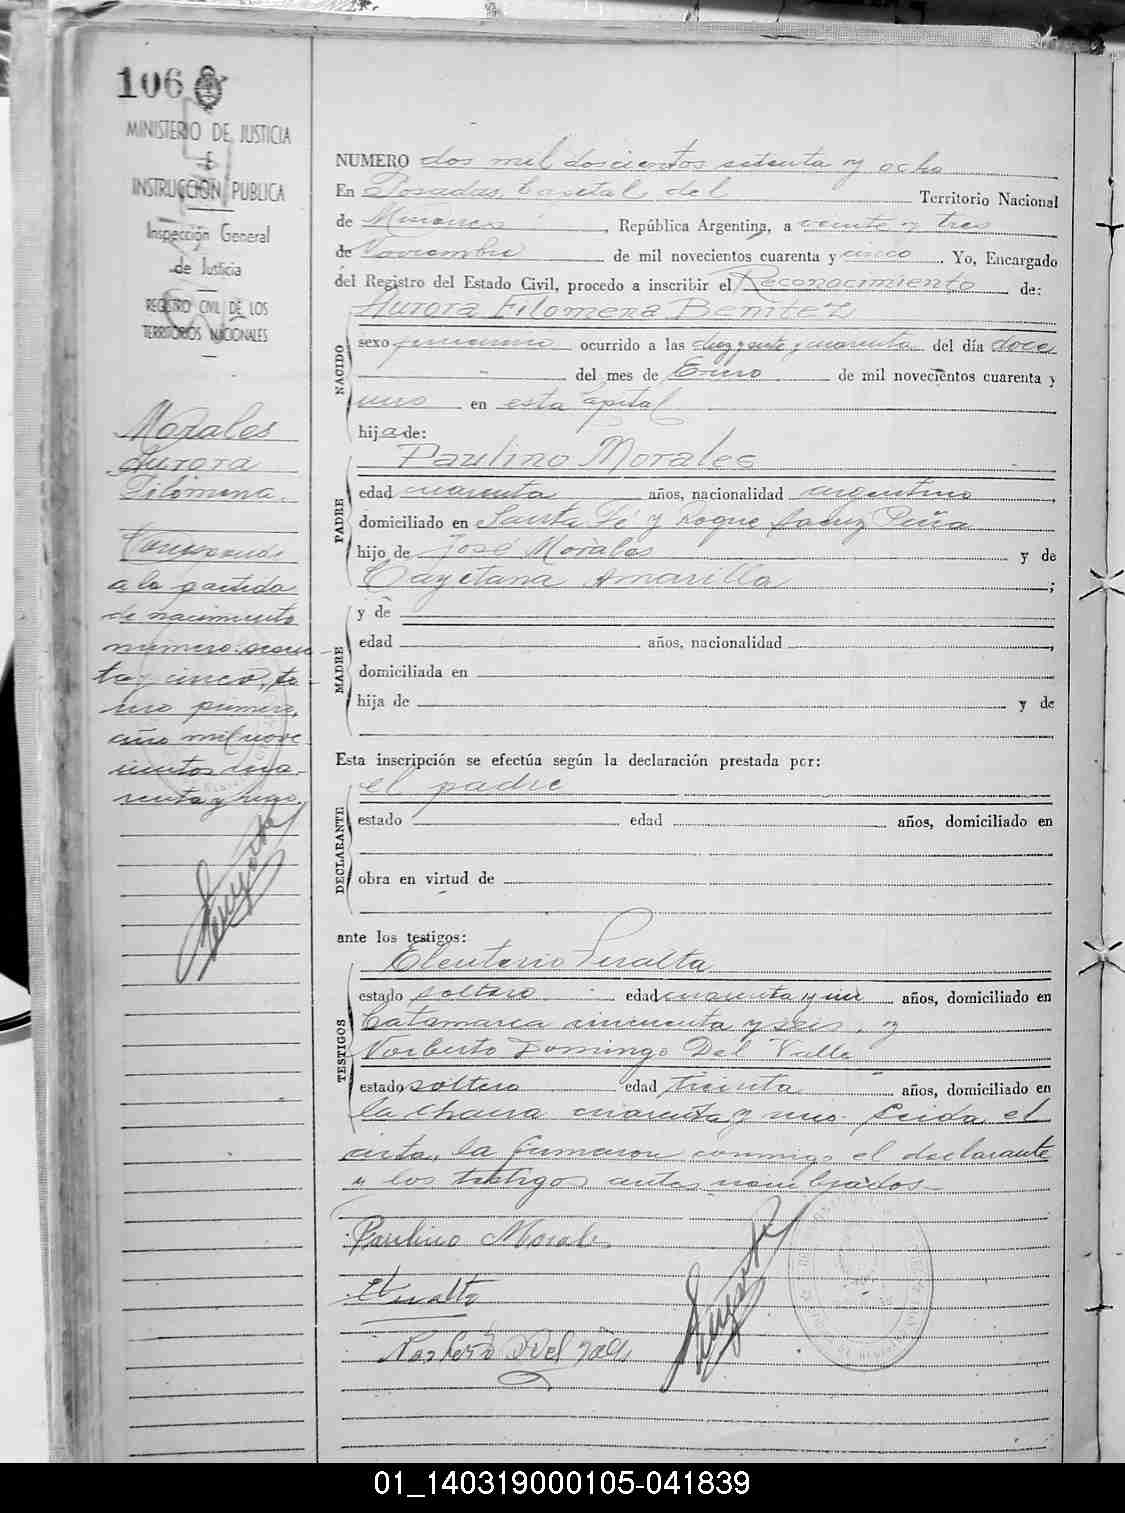 106
MINISTERIO DE JUSTICIA
E
INSTRUCCION PUBLICA
Inspección General
de Justicia
REGISTRO CIVIL DE LOS
TERRITORIOS NACIONALES
Morales
Aurora
Filomena.
Corresponde
a la partida
de nacimiento
numero
ta y cinco, to
mo primero,
año mil nove
cientos cua
renta y uno.
NUMERO dos mil doscientos setenta y ocho
En Posadas, Capital del Territorio Nacional
de Misiones, República Argentina, a veinte y tres
de Noviembre de mil novecientos cuarenta y cinco. Yo, Encargado
del Registro del Estado Civil, procedo a inscribir el Reconocimiento de:
NACIDO
Aurora Filomena Benitez
sexo femenino ocurrido a las diez y siete y cuarenta del día doce
del mes de Enero de mil novecientos cuarenta y
uno en esta Capital
hija de:
PADRE
Paulino Morales
edad cuarenta años, nacionalidad argentino,
domiciliado en Santa Fé y Roque Saenz Peña
hijo de José Morales y de
Cayetana Amarilla;
MADRE
y de
edad años, nacionalidad,
domiciliada en
hija de y de
Esta inscripción se efectúa según la declaración prestada por:
DECLARANTE
el padre
estado edad años, domiciliado en
obra en virtud de
ante los testigos:
TESTIGOS
Eleuterio Peralta
estado soltero edad cuarenta y un años, domiciliado en
Catamarca cincuenta y seis, y
Norberto Domingo Del Valle
estado soltero edad treinta años, domiciliado en
la Chacra cuarenta y uno. Leida el
acta, la firmaron conmigo el declarante
y los testigos antes nombrados.
Paulino Morales
E Peralta
Norberto D Del Valle
01_140319000105-041839